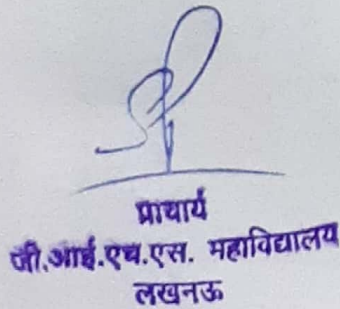 प्राचार्य
जी.आई.एच.एस. महाविद्यालय
लखनऊ